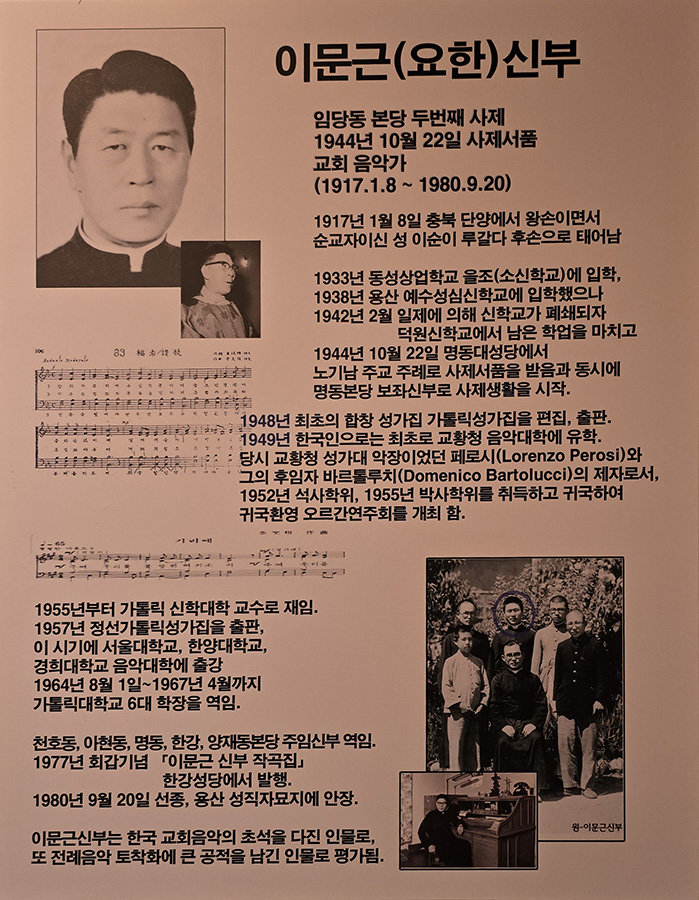 이문근(요한)신부
임당동 본당 두번째 사제
1944년 10월 22일 사제서품
교회 음악가
(1917.1.8 ~ 1980.9.20)
1917년 1월 8일 충북 단양에서 왕손이면서
순교자이신 성 이순이 루갈다 후손으로 태어남
1933년 동성상업학교 을조(소신학교)에 입학,
1938년 용산 예수성심신학교에 입학했으나
1942년 2월 일제에 의해 신학교가 폐쇄되자
덕원신학교에서 남은 학업을 마치고
1944년 10월 22일 명동대성당에서
노기남 주교 주례로 사제서품을 받음과 동시에
명동본당 보좌신부로 사제생활을 시작.
83
1948년 최초의 합창 성가집 가톨릭성가집을 편집, 출판.
1949년 한국인으로는 최초로 교황청 음악대학에 유학.
당시 교황청 성가대 악장이었던 페로시(Lorenzo Perosi)와
그의 후임자 바르톨루치(Domenico Bartolucci)의 제자로서,
1952년 석사학위, 1955년 박사학위를 취득하고 귀국하여
귀국환영 오르간연주회를 개최 함.
1955년부터 가톨릭 신학대학 교수로 재임.
1957년 정선가톨릭성가집을 출판,
이 시기에 서울대학교, 한양대학교,
경희대학교 음악대학에 출강
1964년 8월 1일~1967년 4월까지
가톨릭대학교 6대 학장을 역임.
천호동, 아현동, 명동, 한강, 양재동본당 주임신부 역임.
1977년 회갑기념 「이문근 신부 작곡집」
한강성당에서 발행.
1980년 9월 20일 선종, 용산 성직자묘지에 안장.
이문근신부는 한국 교회음악의 초석을 다진 인물로,
또 전례음악 토착화에 큰 공적을 남긴 인물로 평가됨.
원-이문근신부